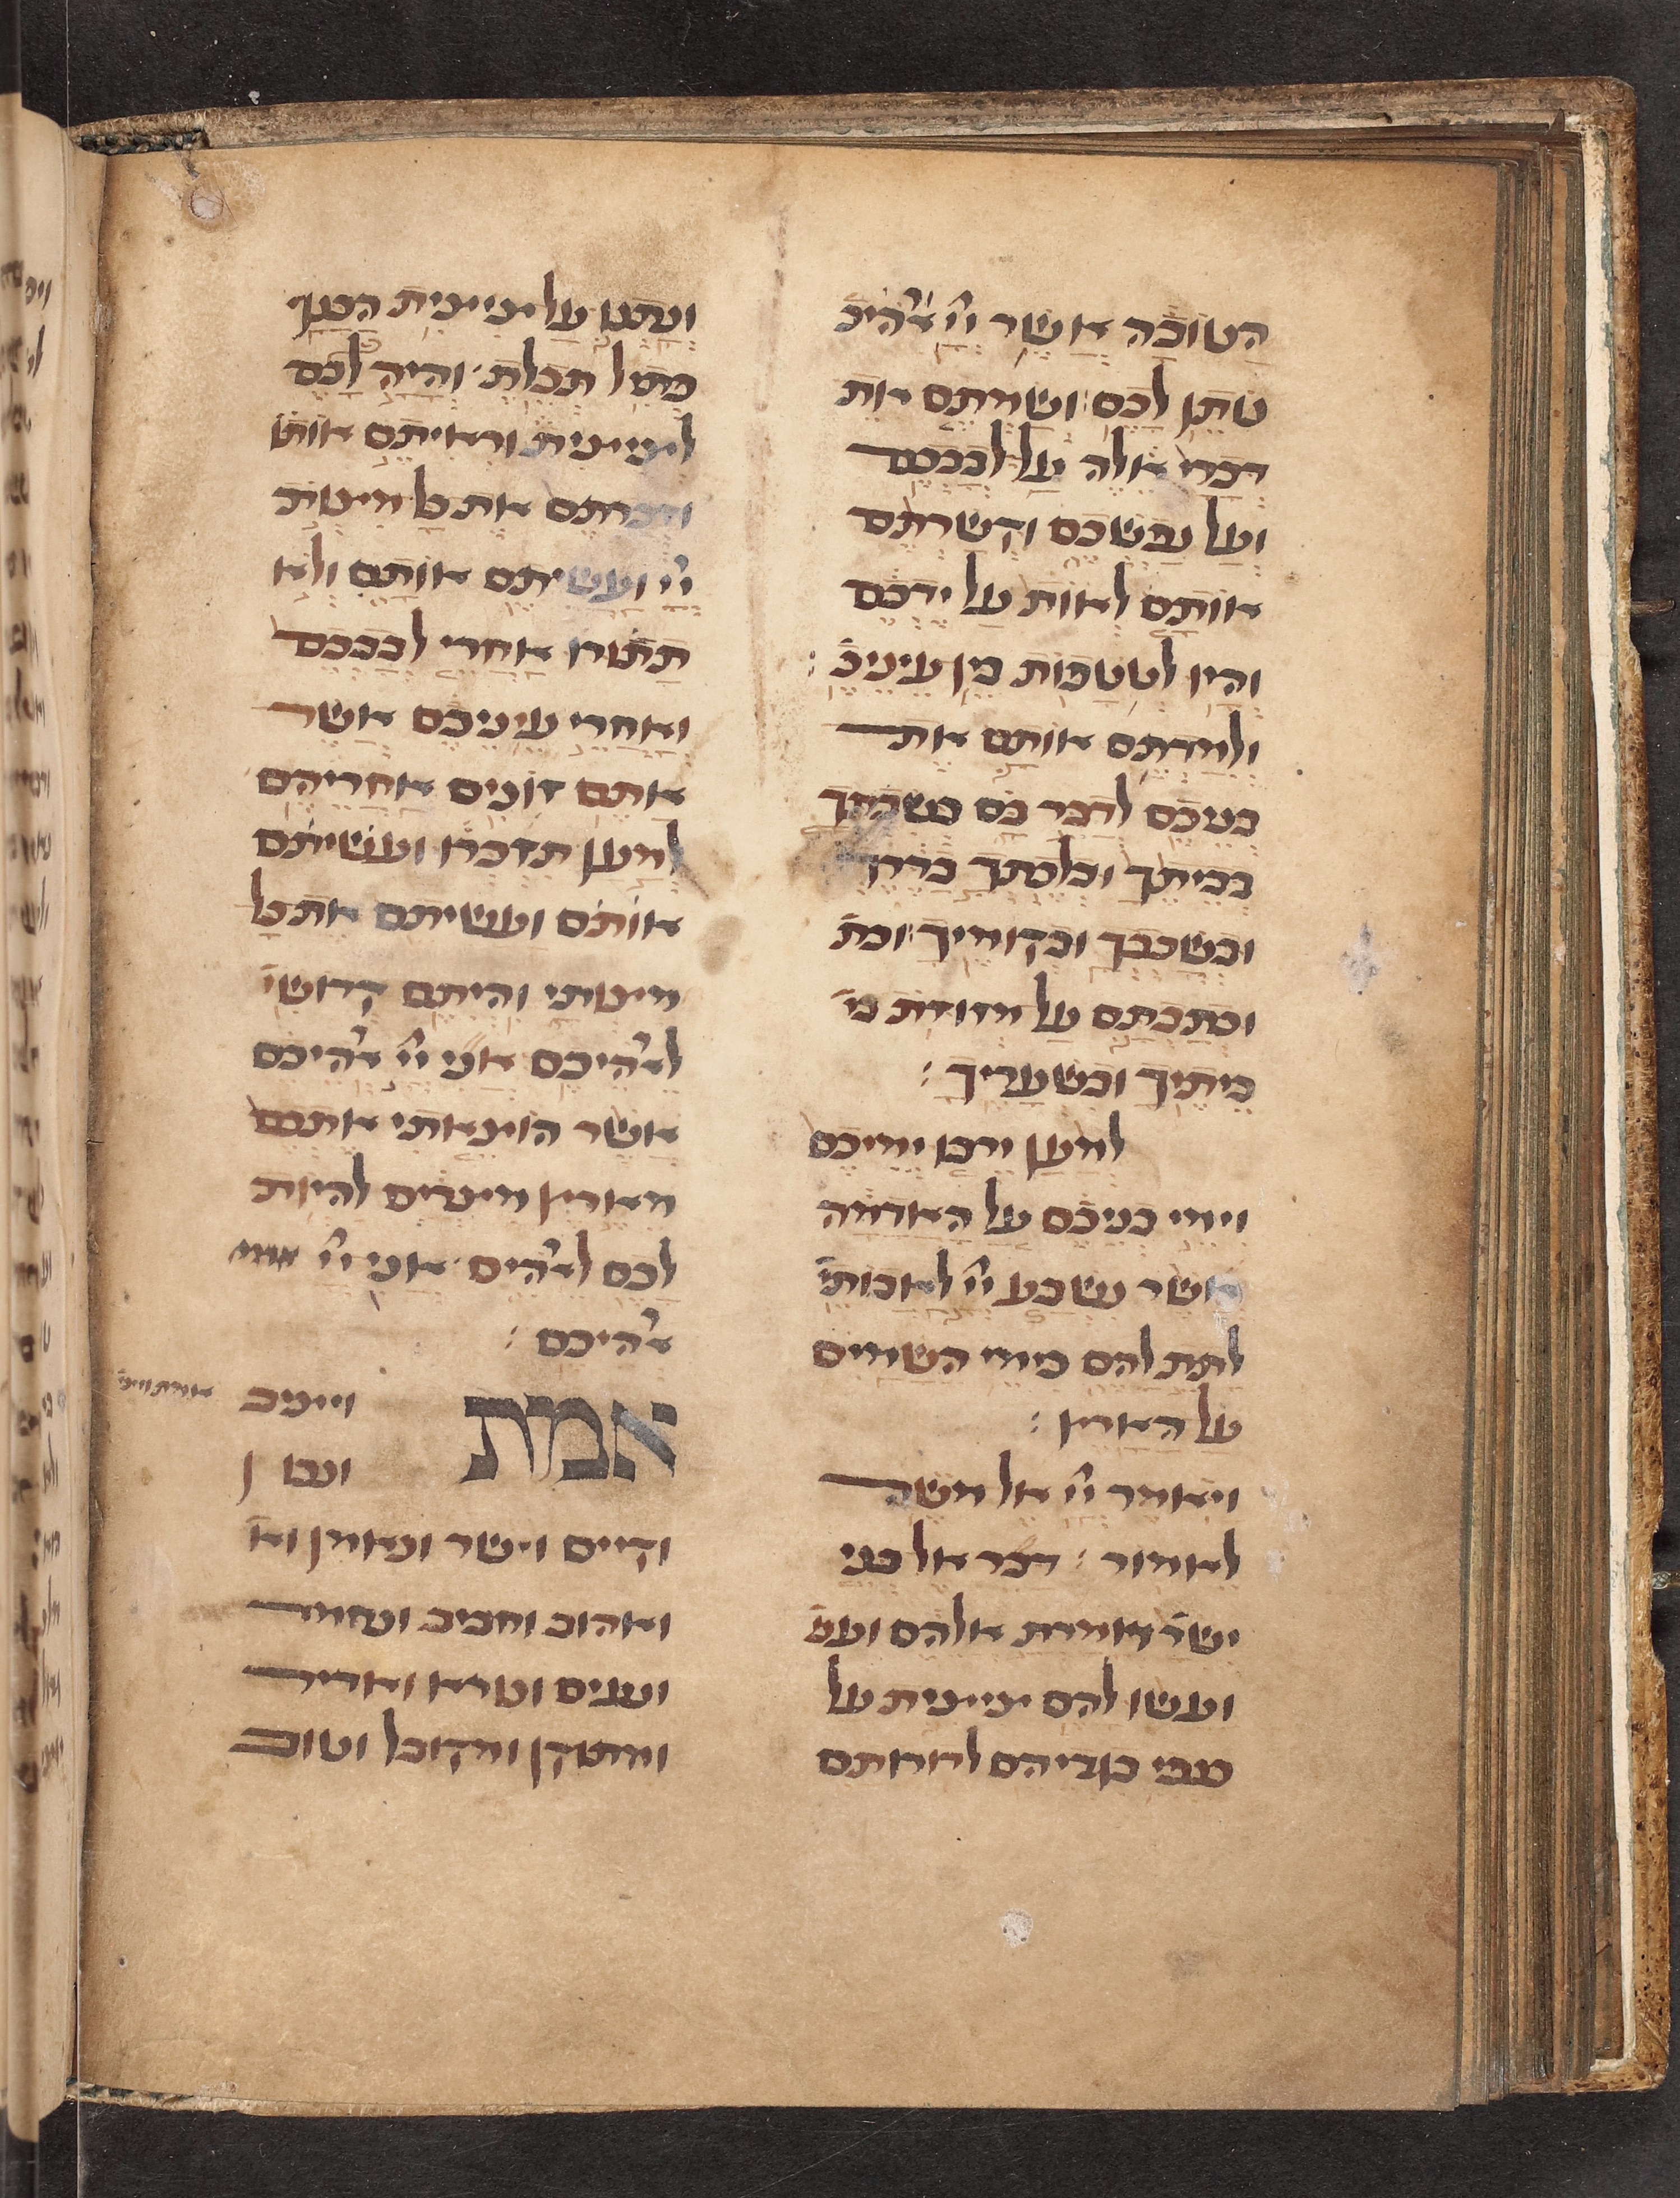 הטובה אשר יי אלהיכ
נותן לכם: ושמתם את
דברי אלה על לבבכם
ועל נפשכם וקשרתם
אותם לאות על ידכם
והיו לטטפות בין עיניכ:
ולמדתם אותם את
בניכם לדבר בם בשבתך
בביתך ובלכתך בדרך
ובשכבך ובקומיך: וכת
וכתבתם על מזוזות בי
ביתיך ובשעריך:
למען ירבו ימיכם
וימי בניכם על האדמה
אשר נשבע יי לאבותי
לתת להם כימי השמים
על הארץ:
ויאמר יי אל משה
לאמור: דבר אל בני
ישר ואמרת אלהם ועש
ועשו להם ציצית על
כנפי בגדיהם לדורותם
ונתנו על ציצית הכנף
פתיל תכלת. והיה לכם
לציצית וראיתם אותו
וזכרתם את כל מצות
יי ועשיתם אותם ולא
תתורו אחרי לבבכם
ואחרי עיניכם אשר
אתם זונים אחריהם
למען תזכרו ועשיתם
אותם ועשיתם את כל
מצותי והיתם קדושי
לאלהיכם אני יי אלהיכם
אשר הוצאתי אתכם
מארץ מצרים להיות
לכם לאלהים. אני יי
אלהיכם:
אמת ויציב
ונכון
וקיים וישר ונאמן וא
ואהוב וחביב ונחמד
ונעים ונורא ואדיר
ומתוקן ומקובל וטוב